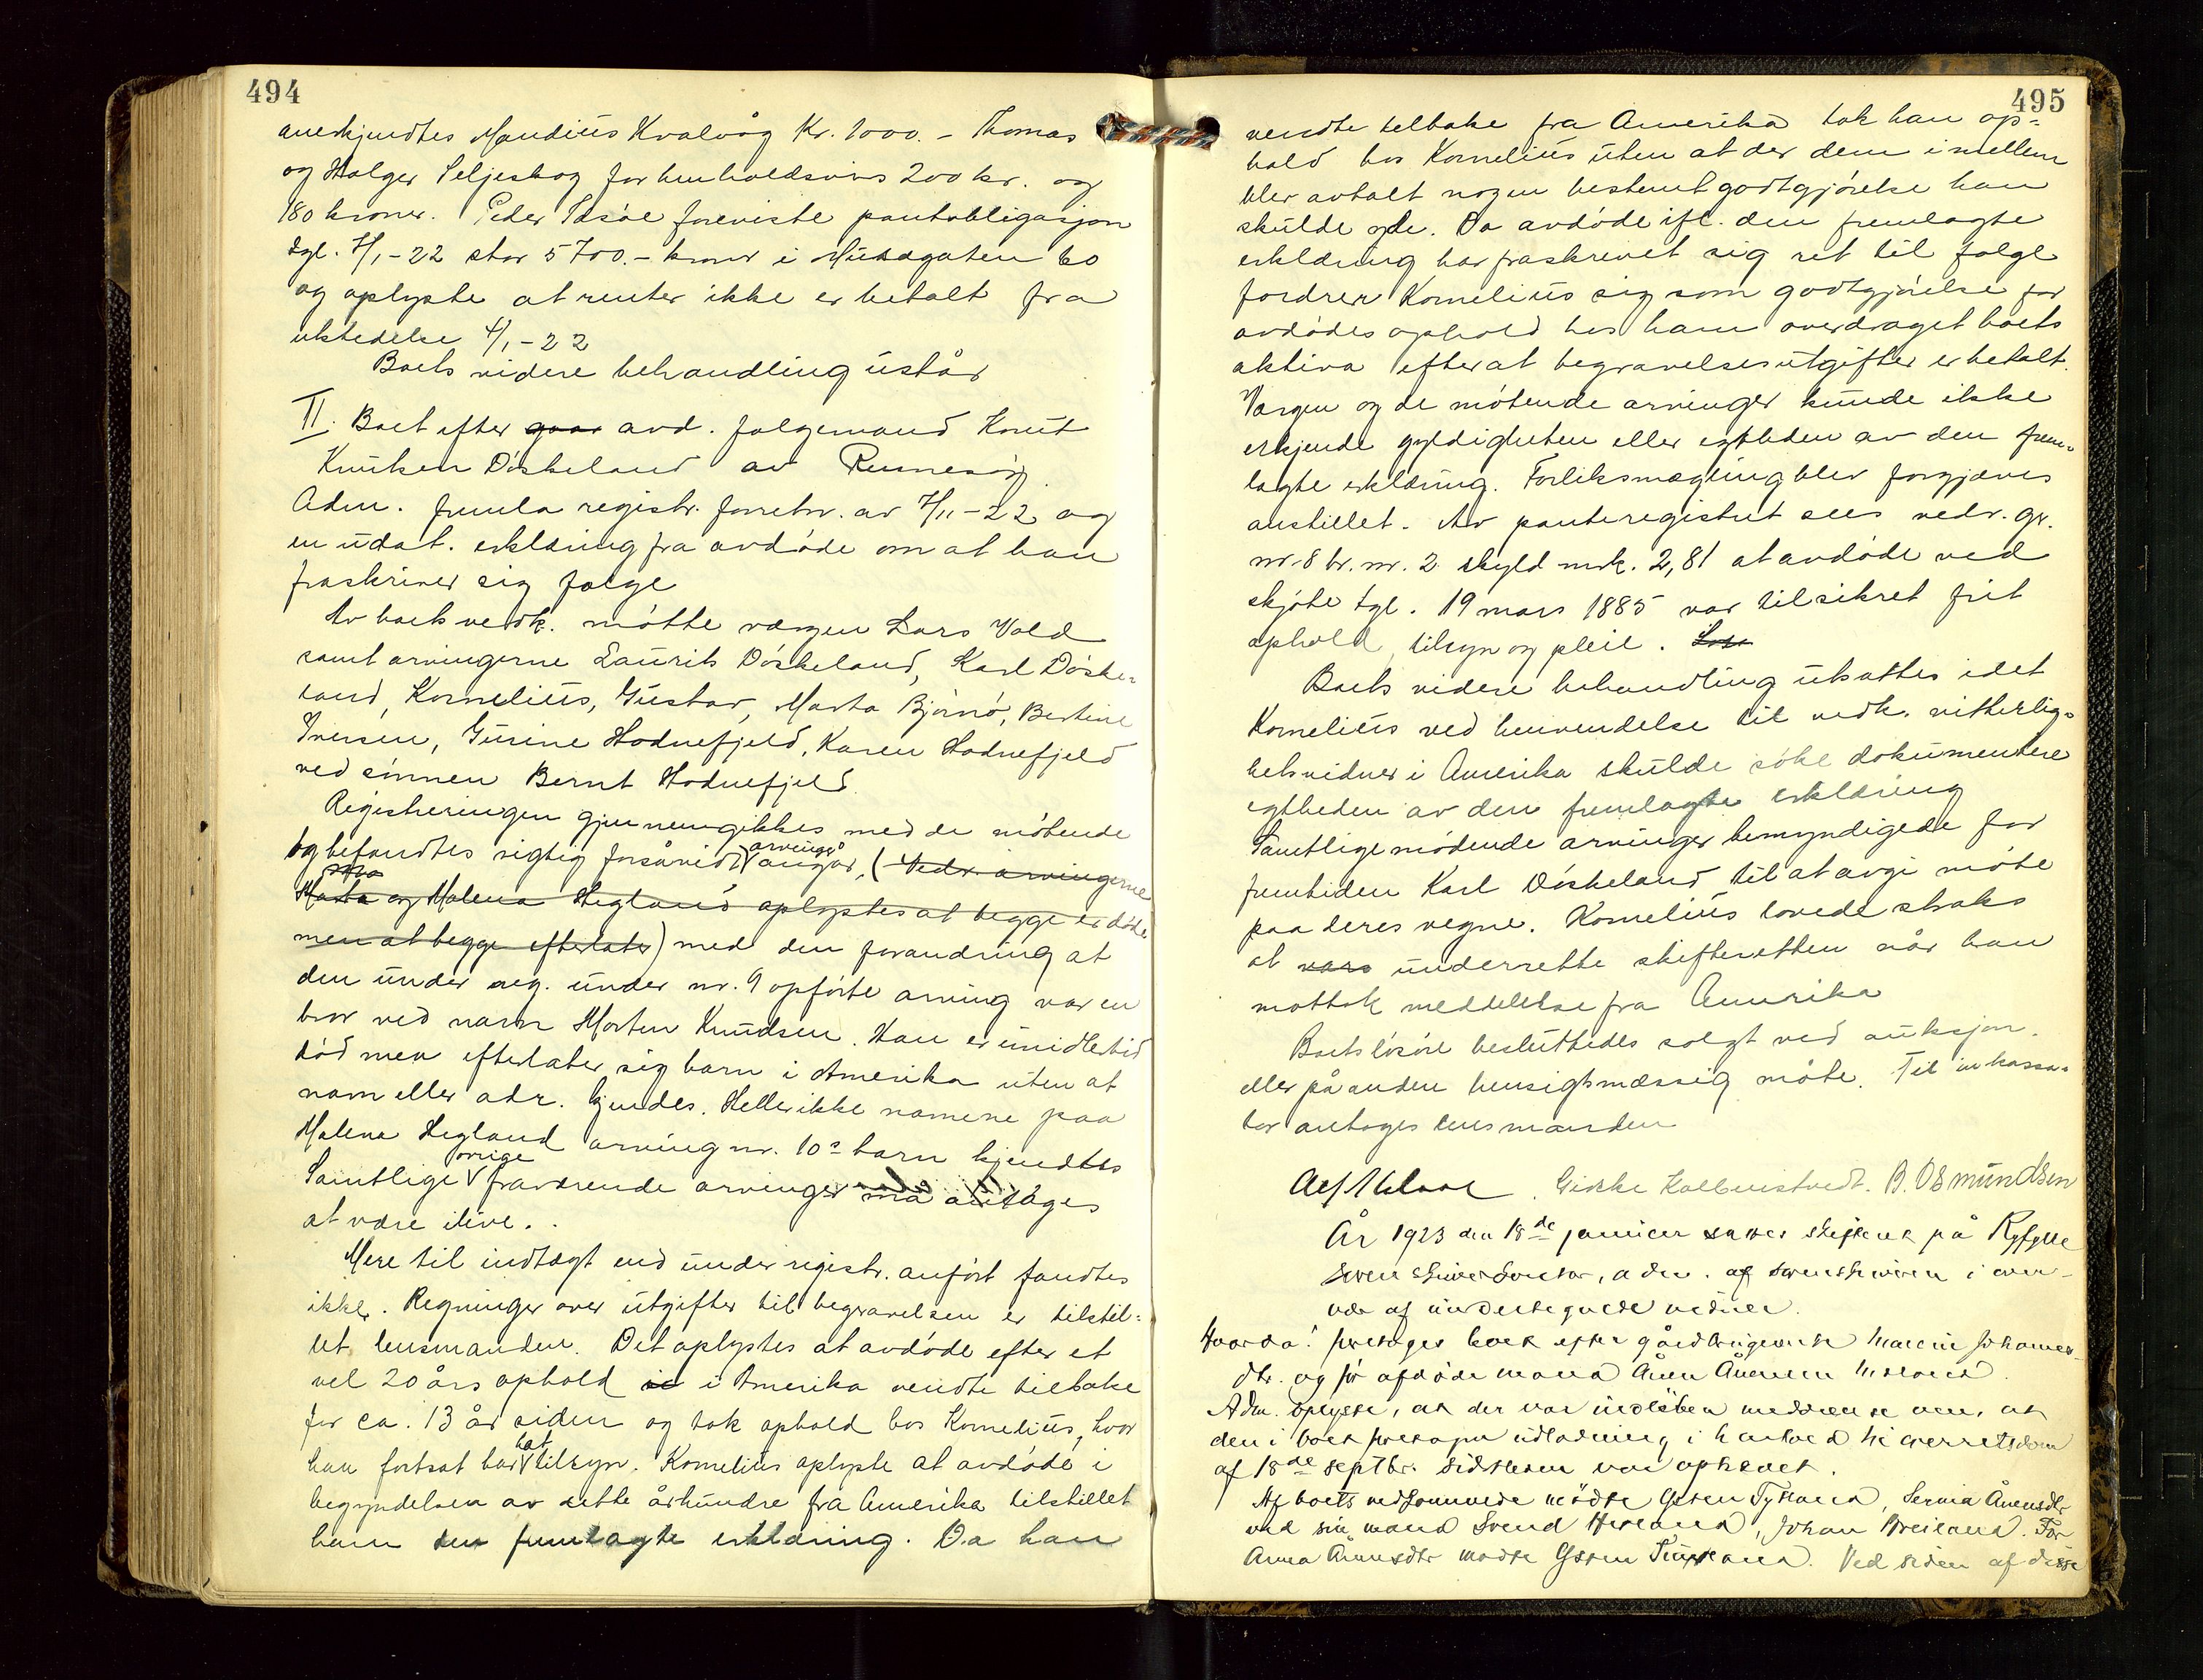 494
anerkjendtes Mandius Kvalvåg Kr. 1000.- Thomas
og Holger Seljeskog for henholdsvis 200 kr. og
180 kroner. Peder foreviste pantobligasjon
tgl. 7/1-22 stor 5700.- kroner i Musegaten 60
og oplyste at renter ikke er betalt fra
utstedelse 4/1-22
Boets videre behandling utstår
II. Boet efter avd. folgemand Knut
Knutsen Döskeland av Rennesöy
Adm. fremla registr. forretn. av 7/11-22 og
en udat. erklæring fra avdöde om at han
fraskriver sig folge
Av boets vedk. mötte vergen Lars Vold
samt arvingerne Laurits Döskeland, Karl Döske-
land, Kornelius, Gustav, Marta Björnö, Bertine
Iversen, Gurine Hodnefjeld, Karen Hodnefjeld
ved sönnen Bernt Hodnefjeld.
Registreringen gjennemgikkes med de mötende
og befandtes rigtig forsåvidt arvinger angår, (Vedr. arvingerne
Marta og Malena Hegland oplystes at begge er döde
men at begge efterlater) med den forandring at
den under reg. under nr. 9 opförte arving var en
bror ved navn Morten Knudsen. Han er imidlertid
död men efterlater sig barn i Amerika uten at
navn eller adr. kjendes. Heller ikke navnene paa
Malena Hegland arving nr. 10s barn kjendtes
Samtlige övrige fraværende arvinger må antages
at være ilive.
Mere til indtægt end under registr. anfört fandtes
ikke. Regninger over utgifter til begravelsen er tilstil-
let lensmanden. Det oplystes at avdöde efter et
vel 20 års ophold i Amerika vendte tilbake
for ca. 13 år siden og tok ophold hos Kornelius, hvor
han fortsat har hat tilsyn. Kornelius oplyste at avdöde i
begyndelsen av dette århundre fra Amerika tilstillet
ham den fremlagte erklæring. Da han
495
vendte tilbake fra Amerika tok han op-
hold hos Kornelius uten at der dem imellem
blev avtalt nogen bestemt godtgjörelse han
skulde yde. Da avdöde ifl. den fremlagte
erklæring har fraskrevet sig ret til folge
fordrer Kornelius sig som godtgjörelse for
avdödes ophold hos ham overdraget boets
aktiva efter at begravelsesutgifter er betalt.
Vergen og de mötende arvinger kunde ikke
erkjende gyldigheten eller egtheden av den frem-
lagte erklæring. Forliksmægling blev forgjæves
anstillet. Av panteregistret sees vedr. gr.
nr. 8 br. nr. 2 skyld mrk. 2,81 at avdöde ved
skjöte tgl. 19 mars 1885 var tilsikret frit
ophold, tilsyn og pleie.
Boets videre behandling utsattes idet
Kornelius ved henvendelse til vedk. vitterlig-
hetsvidner i Amerika skulde söke dokumentere
egtheden av den fremlagte erklæring
Samtlige mödende arvinger bemyndigede for
fremtiden Karl Döskeland til at avgi möte
paa deres vegne. Kornelius lovede straks
at underrette skifteretten når han
mottok meddelelse fra Amerika
Boets lösöre besluttedes solgt ved auksjon
eller på anden hensigtsmæssig måte. Til inkassa-
tor antages lensmanden
Gikke Kolbenstvedt. B. Osmundsen
År 1923 den 18de januar sattes skifteret på Ryfylke
sorenskriverkontor, adm. af sorenskriveren i over-
vær af undertegnede vidner.
Hvorda: foretoges boet efter gårdbrugerenke Johannes-
dtr. og för afdöde mand Ånen Ånensen
Adm. oplyste, at der var indlöben meddelelse om, at
den i boet foretagne udlodning i henhold til overretsdom
af 18de septbr. sidstleden var ophævet.
Af boets vedkommende mödte Tytland, Serina Ånensdtr
ved sin mand Svend, Johan Breiland. For
Anna Ånensdtr mödte. Ved siden af disse